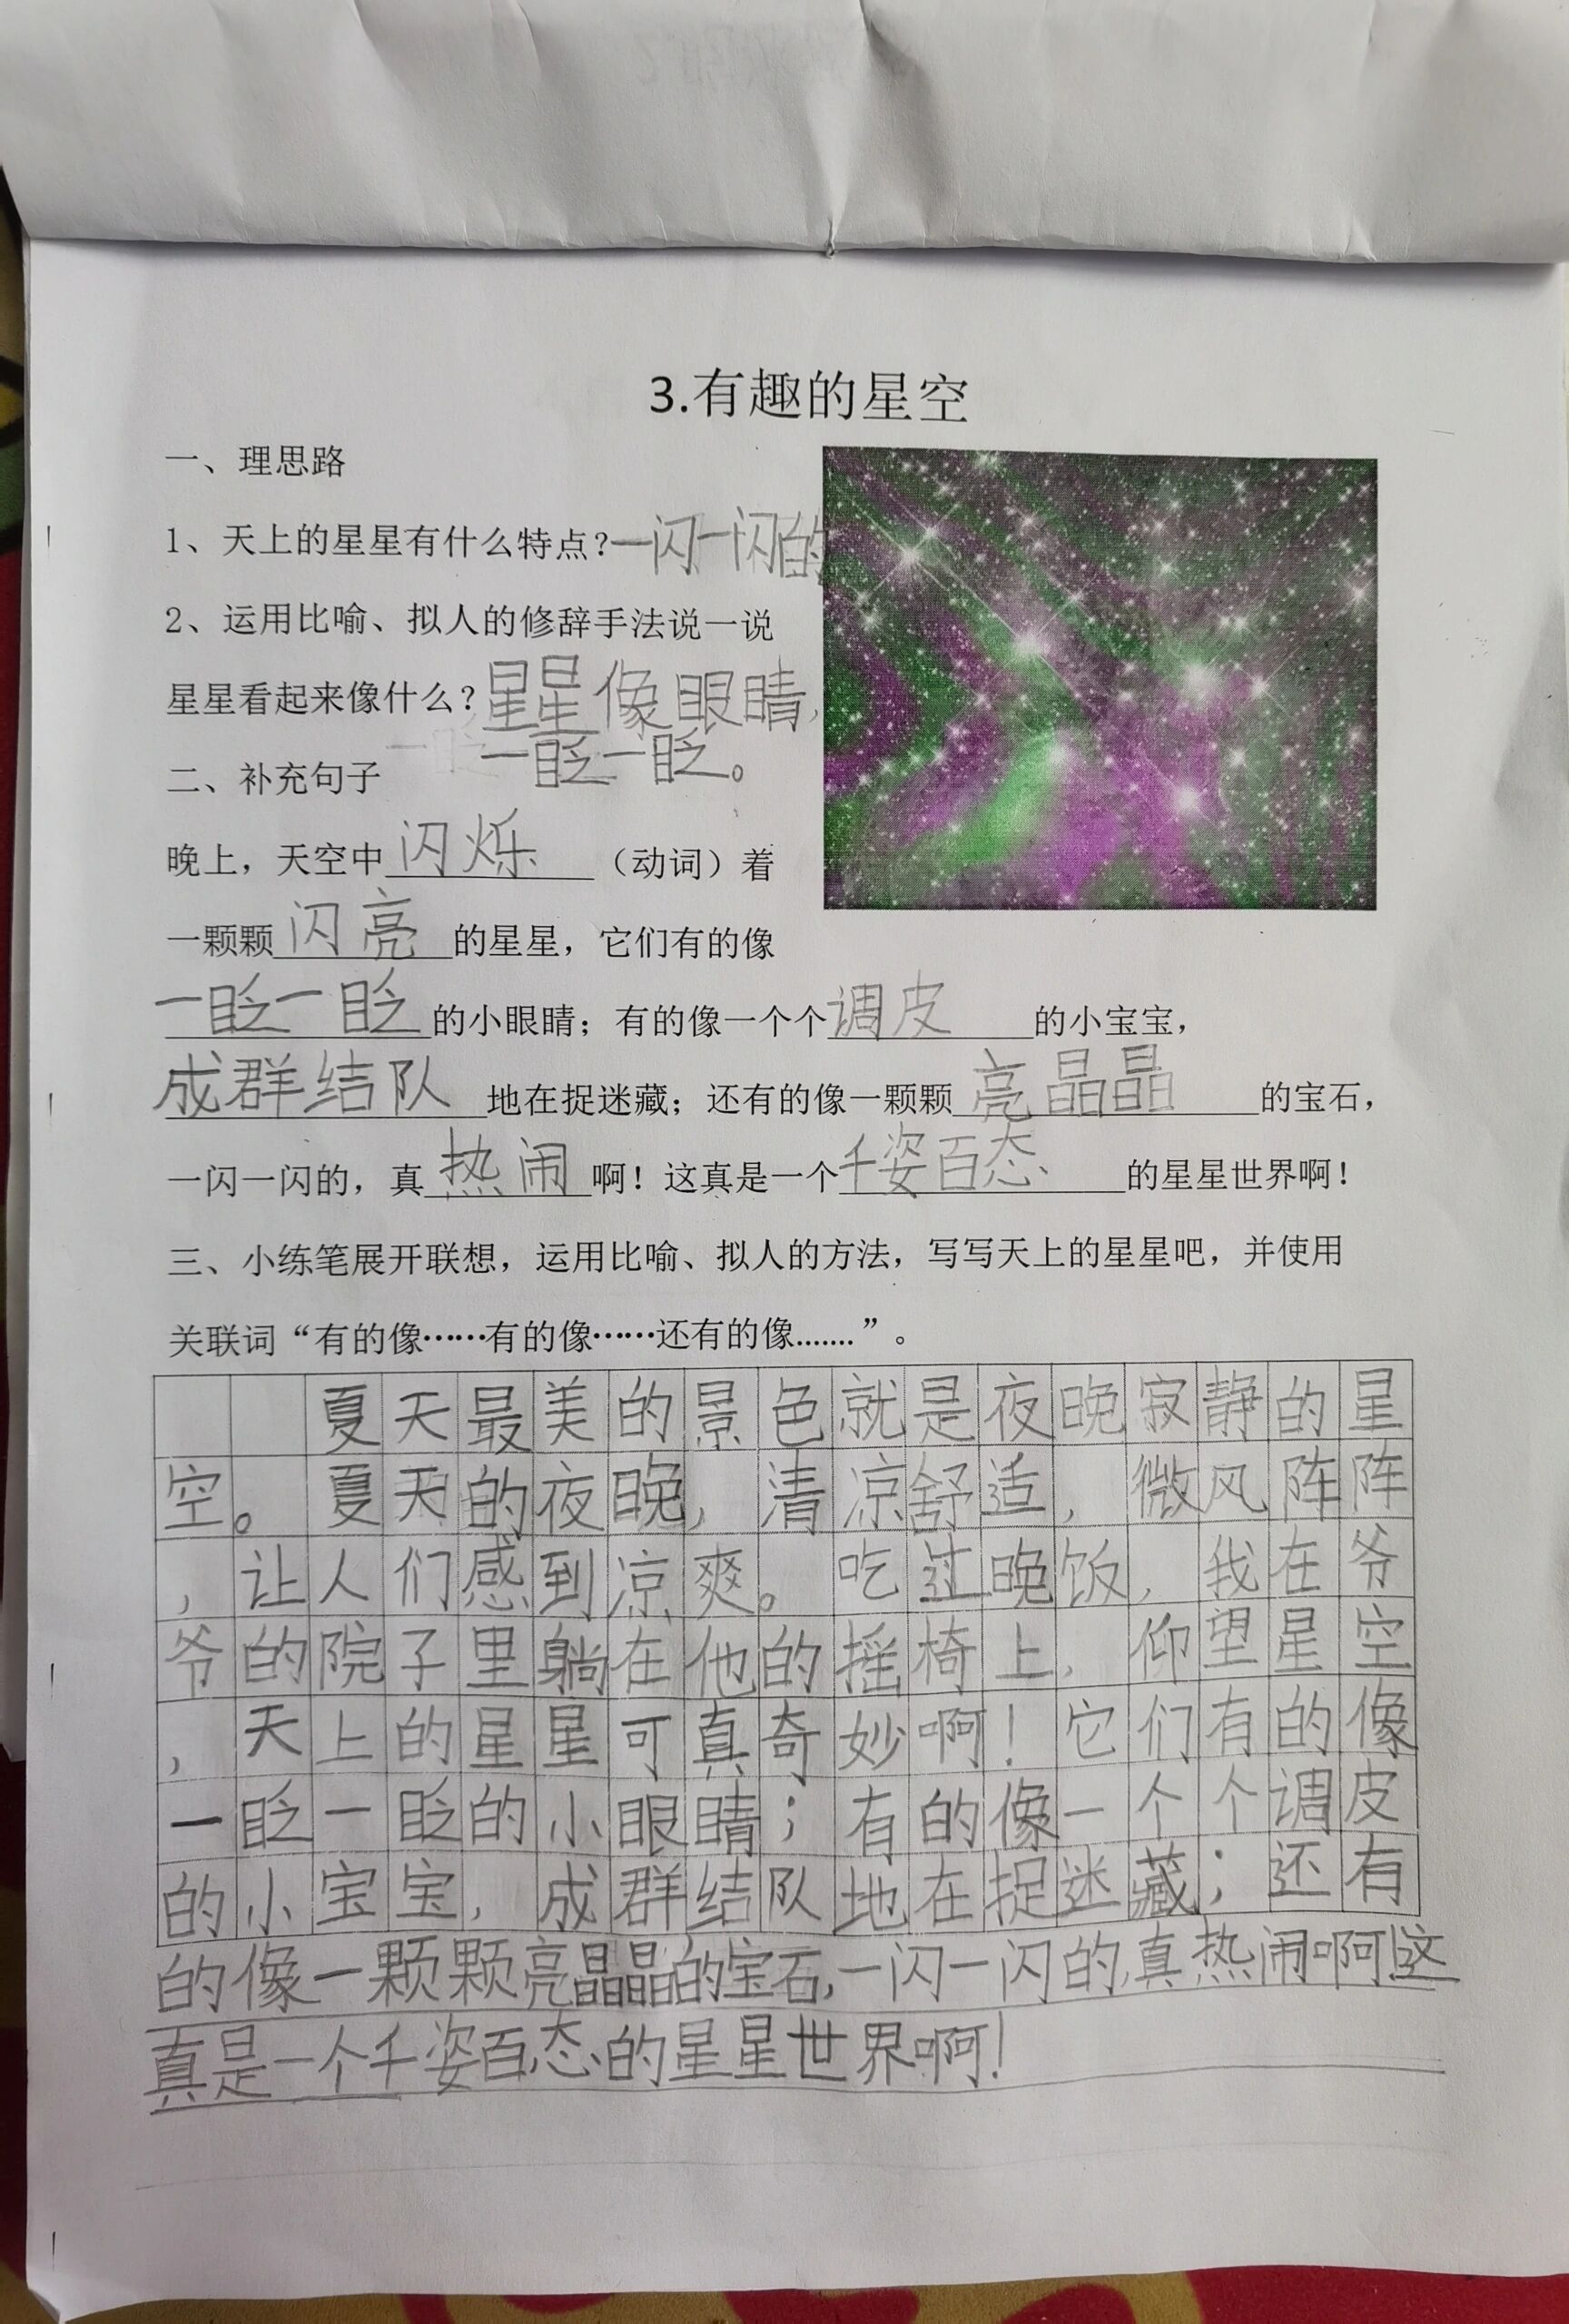 3.有趣的星空
一、理思路
1、天上的星星有什么特点？一闪一闪的
2、运用比喻、拟人的修辞手法说一说
星星看起来像什么？星星像眼睛，
一眨一眨。
二、补充句子
晚上，天空中闪烁（动词）着
一颗颗闪亮的星星，它们有的像
一眨一眨的小眼睛；有的像一个个调皮的小宝宝，
成群结队地在捉迷藏；还有的像一颗颗亮晶晶的宝石，
一闪一闪的，真热闹啊！这真是一个千姿百态的星星世界啊！
三、小练笔展开联想，运用比喻、拟人的方法，写写天上的星星吧，并使用
关联词“有的像……有的像……还有的像.......”。
夏天最美的景色就是夜晚寂静的星
空。夏天的夜晚，清凉舒适，微风阵阵
，让人们感到凉爽。吃过晚饭，我在爷
爷的院子里躺在他的摇椅上，仰望星空
，天上的星星可真奇妙啊！它们有的像
一眨一眨的小眼睛；有的像一个个调皮
的小宝宝，成群结队地在捉迷藏；还有
的像一颗颗亮晶晶的宝石，一闪一闪的，真热闹啊！这
真是一个千姿百态的星星世界啊！